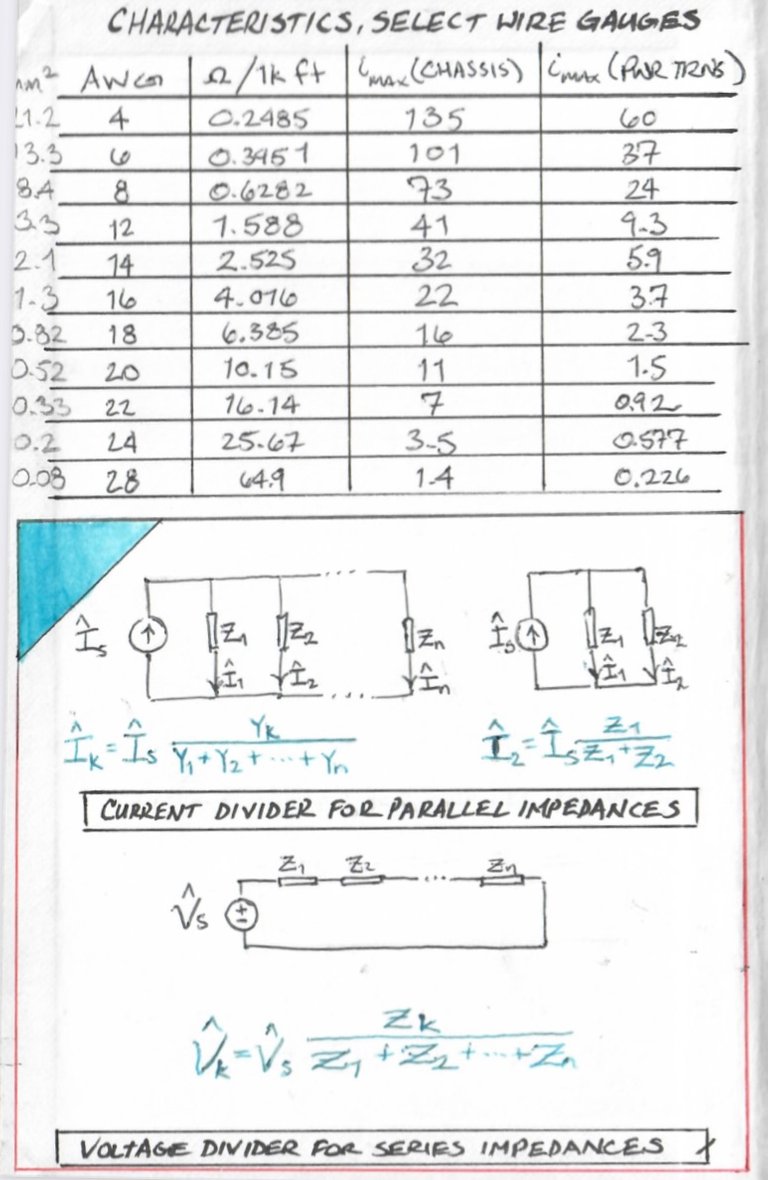 CHARACTERISTICS, SELECT WIRE GAUGES
mm² AWG Ω/1k ft iMAX (CHASSIS) iMAX (PWR TRNS)
21.2 4 0.2485 135 60
13.3 6 0.3951 101 37
8.4 8 0.6282 73 24
3.3 12 1.588 41 9.3
2.1 14 2.525 32 5.9
1.3 16 4.016 22 3.7
0.82 18 6.385 16 2.3
0.52 20 10.15 11 1.5
0.33 22 16.14 7 0.92
0.2 24 25.67 3.5 0.577
0.08 28 64.9 1.4 0.226
Îs ↑ Z1 Z2 ... Zn
Î1 Î2 ... În
Îk = Îs Yk / (Y1 + Y2 + ... + Yn)
Îs ↑ Z1 Z2
Î1 Î2
Î2 = Îs Z1 / (Z1 + Z2)
CURRENT DIVIDER FOR PARALLEL IMPEDANCES
Z1 Z2 ... Zn
V̂s ±
V̂k = V̂s Zk / (Z1 + Z2 + ... + Zn)
VOLTAGE DIVIDER FOR SERIES IMPEDANCES